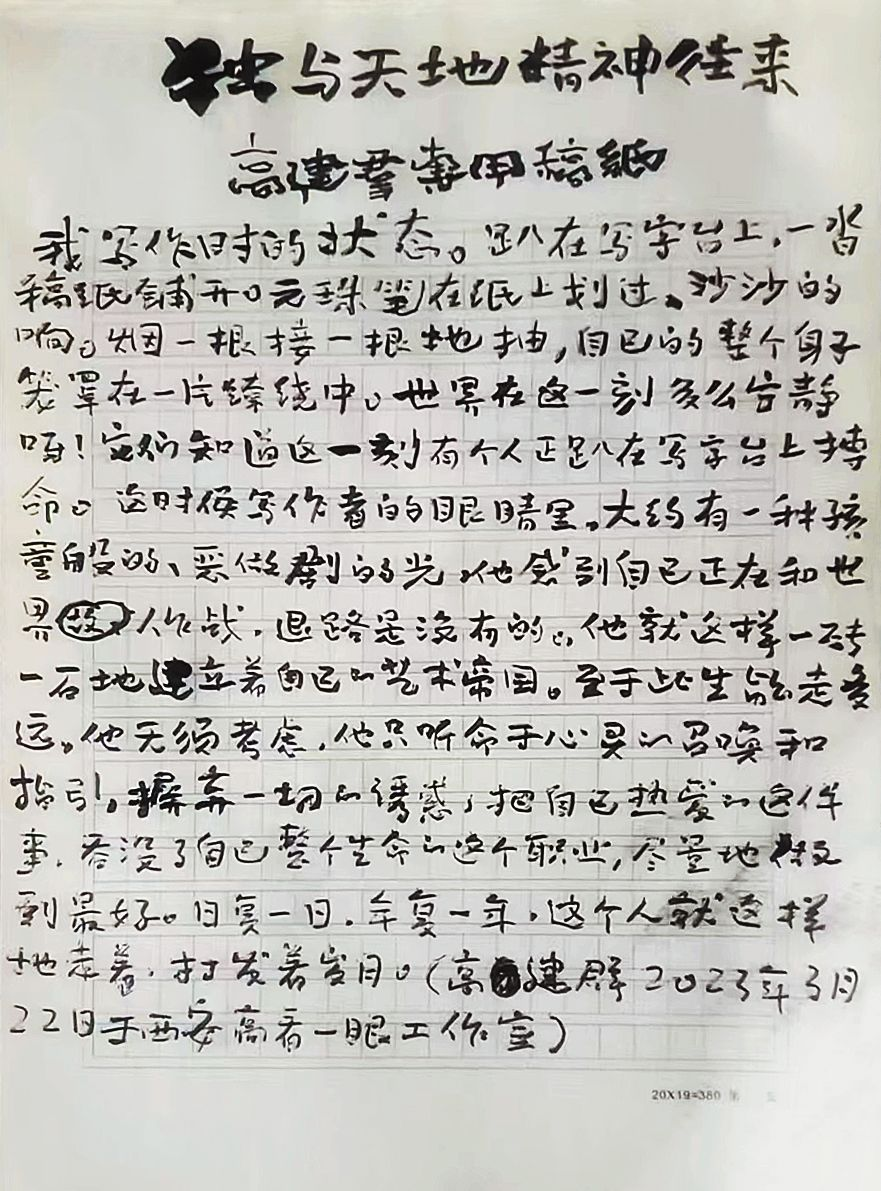 独与天地精神往来
高建群专用稿纸
我写作时的状态。趴在写字台上,一沓
稿纸铺开。元珠笔在纸上划过、沙沙的
响。烟一根接一根地抽,自己的整个身子
笼罩在一片缭绕中。世界在这一刻多么安静
呀!它们知道这一刻有个人正趴在写字台上搏
命。这时候写作者的眼睛里,大约有一种孩
童般的、恶做剧的光,他感到自己正在和世
界作战,退路是没有的。他就这样一砖
一石地建立着自己的艺术帝国。至于此生能走多
远,他无须考虑,他只听命于心灵的召唤和
指引,摒弃一切的诱惑,把自己热爱的这件
事,吞没了自己整个生命的这个职业,尽量地做
到最好。日复一日,年复一年,这个人就这样
地走着,打发着岁月。(高建群2023年3月
22日于西安高看一眼工作室)
20X19=380 第 页